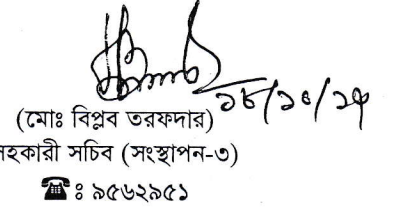 ১৮/১০/২৭
(মোঃ বিপ্লব তরফদার)
সহকারী সচিব (সংস্থাপন-৩)
☎ঃ ৯৫৬২৯৫১